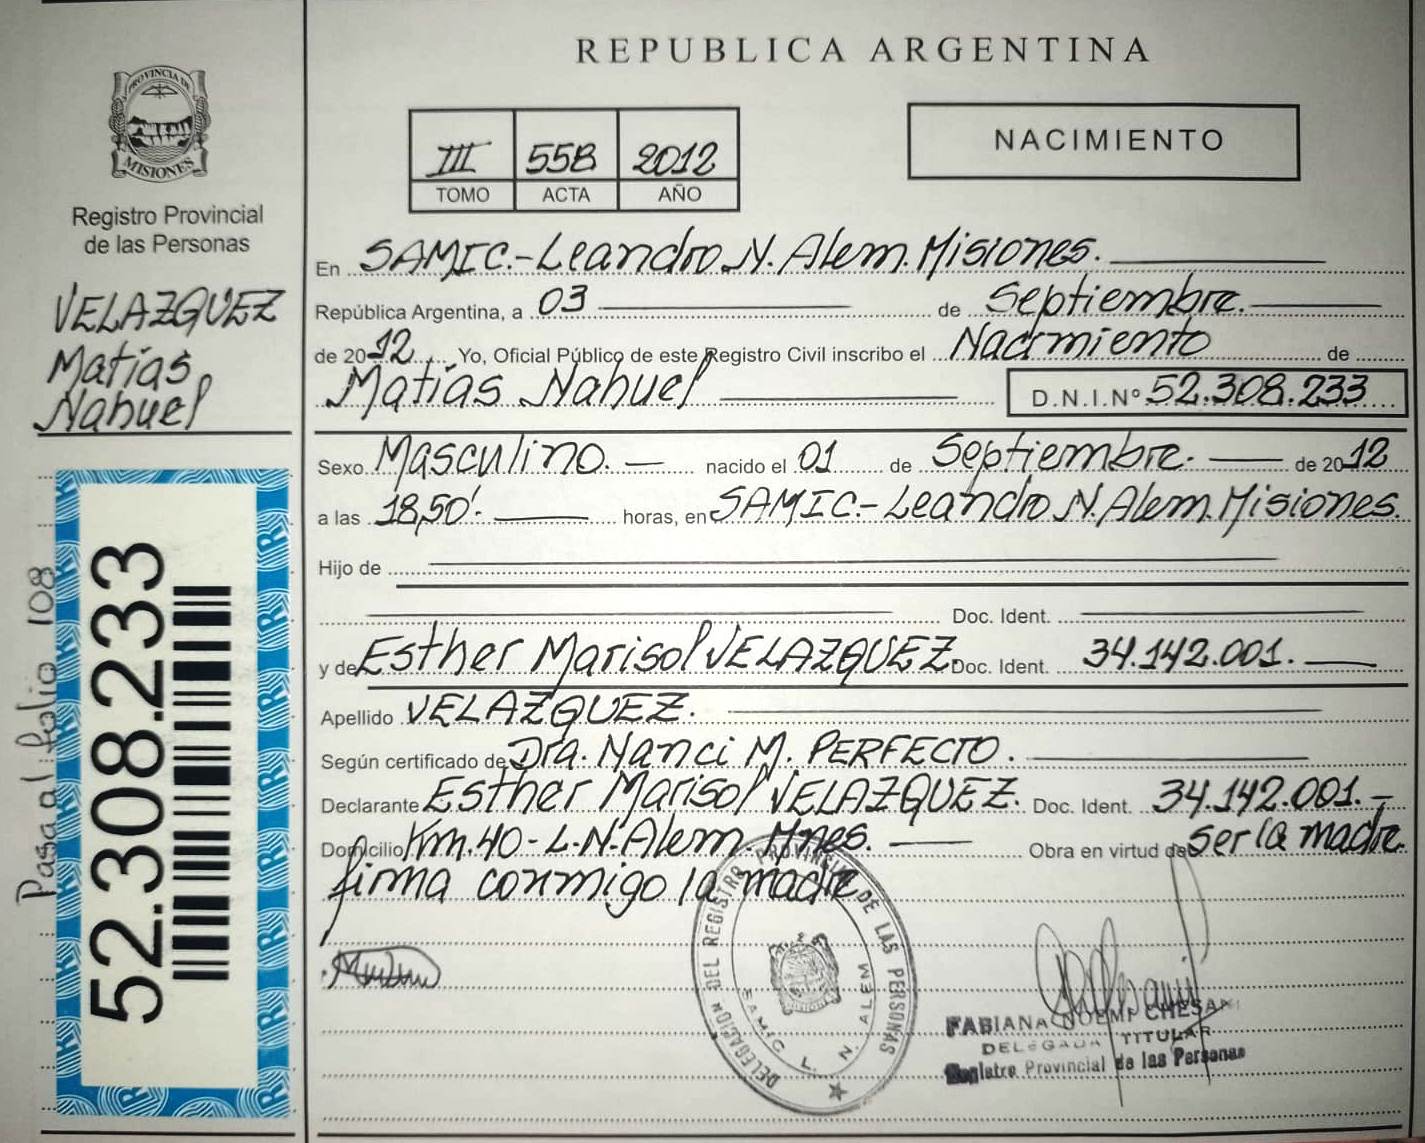 REPUBLICA ARGENTINA
PROVINCIA DE
MISIONES
Registro Provincial
de las Personas
VELAZQUEZ
Matías
Nahuel
Pasa al folio 108
52.308.233
III 55B 2012
TOMO ACTA AÑO
NACIMIENTO
En SAMIC.-Leandro N. Alem. Misiones.
República Argentina, a 03 de Septiembre.
de 2012 Yo, Oficial Público de este Registro Civil inscribo el Nacimiento de
Matías Nahuel D.N.I.Nº 52.308.233
Sexo Masculino. nacido el 01 de Septiembre. de 2012
a las 18,50'. horas, en SAMIC.-Leandro N. Alem. Misiones.
Hijo de
Doc. Ident.
y de Esther Marisol VELAZQUEZ. Doc. Ident. 34.142.001.
Apellido VELAZQUEZ.
Según certificado de Dra. Nanci M. PERFECTO.
Declarante Esther Marisol VELAZQUEZ. Doc. Ident. 34.142.001.-
Domicilio Km.40-L.N.Alem. Mnes. Obra en virtud de ser la madre.
firma conmigo la madre
DELEGACION DEL REGISTRO PROVINCIAL DE LAS PERSONAS
SAMIC L. N. ALEM
FABIANA NOEMI CHESANI
DELEGADA TITULAR
Registro Provincial de las Personas